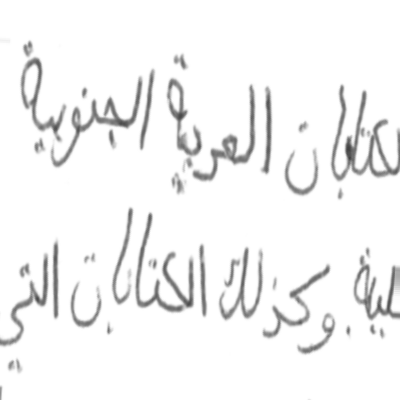 لكتابات العربية الجنوبية
لية. وكذلك الكتابات التي